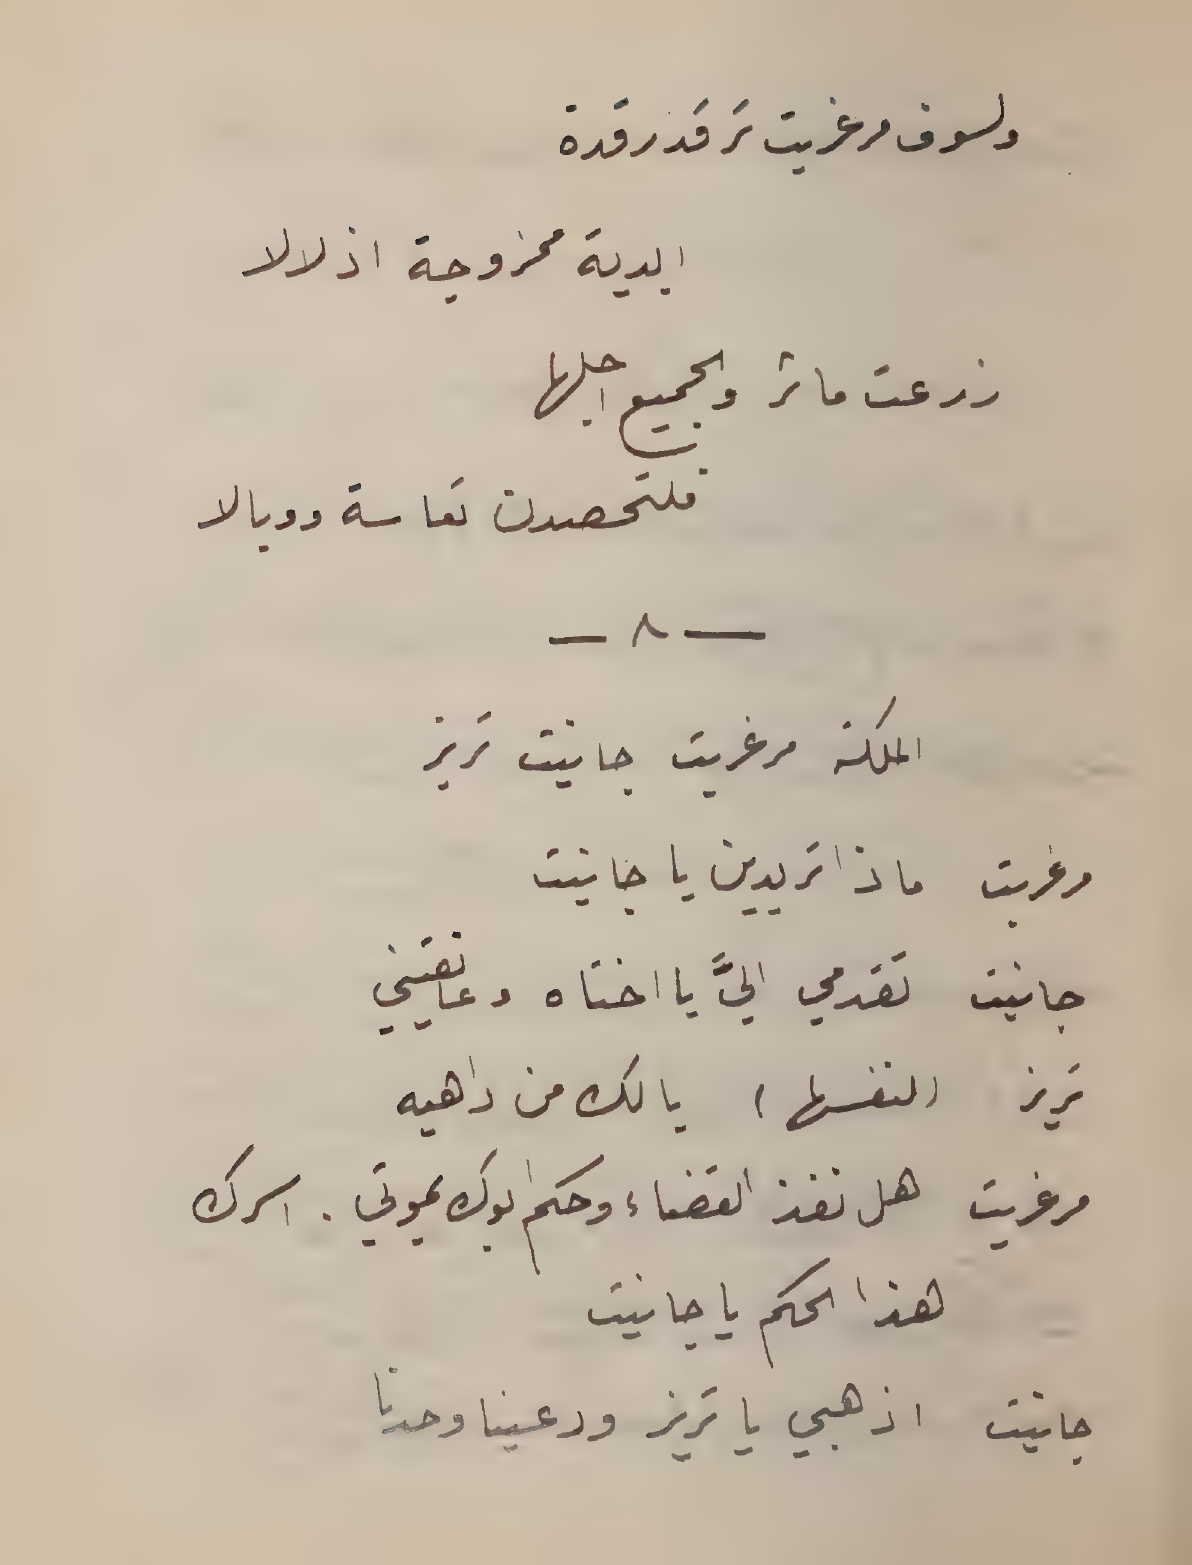 ولسوف مرغريت ترقد رقدة
ابدية ممزوجة اذلالا
زرعت مآثر والجميع اجلها
فلتحصدن تعاسة ووبالا
— ٨ —
الملكة مرغريت جانيت تريز
مرغريت ماذا تريدين يا جانيت
جانيت تقدمي اليَّ يا اختاه وعانقيني
تريز (لنفسها) يا لك من داهيه
مرغريت هل نفذ القضاء وحكم ابوك بموتي . اسرك
هذا الحكم يا جانيت
جانيت اذهبي يا تريز ودعينا وحدنا